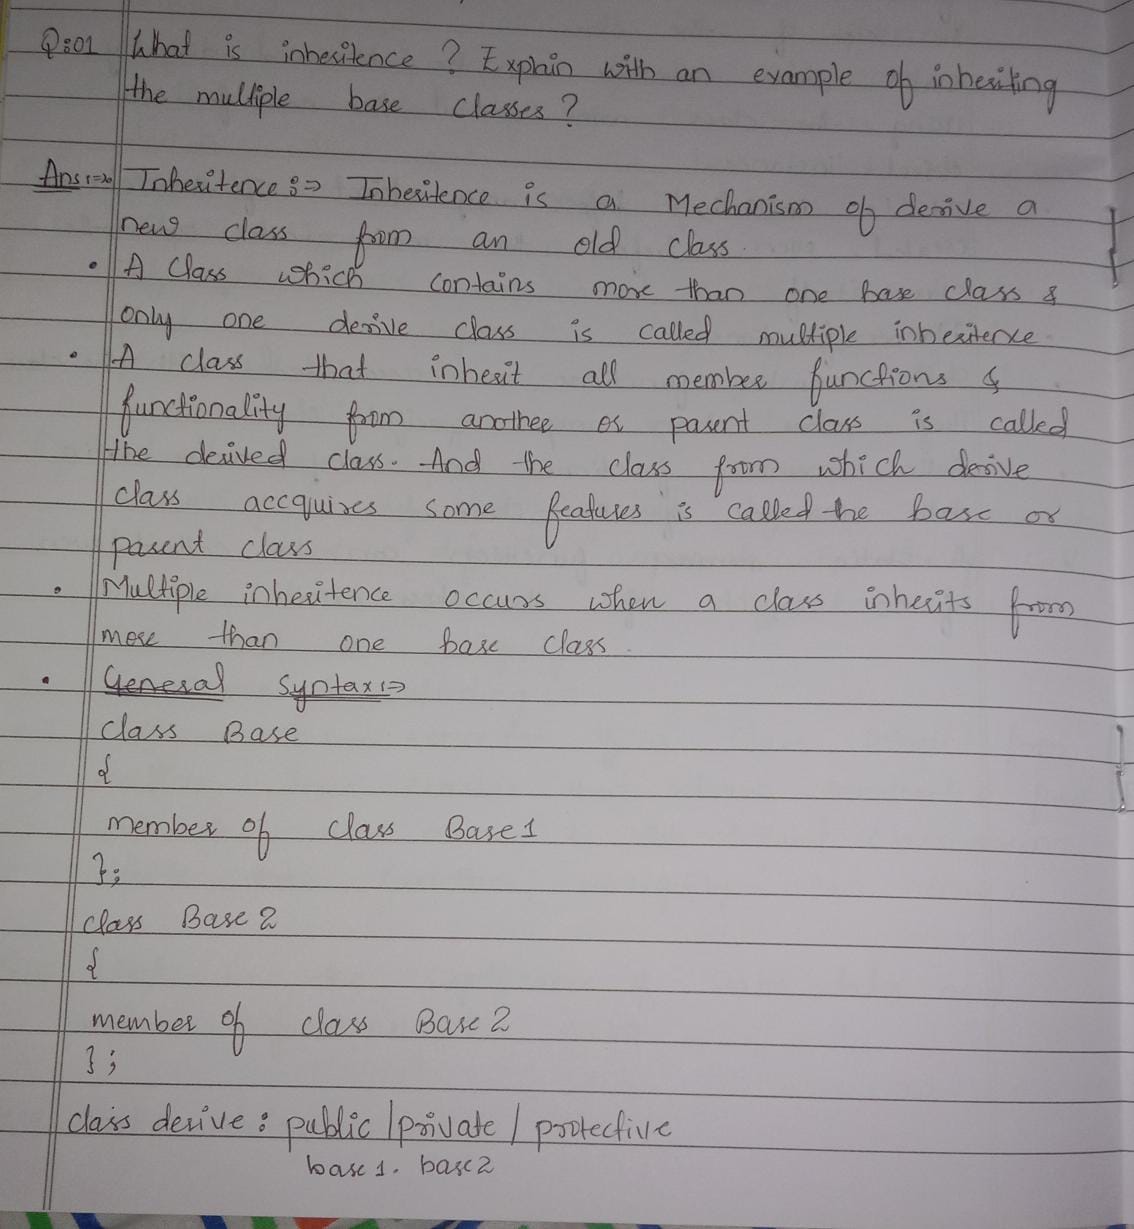 Q:01 What is inheritence ? Explain with an example of inheriting
the multiple base classes ?
Ans :=> Inheritence :=> Inheritence is a Mechanism of derive a
new class from an old class.
• A Class which contains more than one base class &
only one derive class is called multiple inheritence
• A class that inherit all member functions &
functionality from another or parent class is called
the derived class. And the class from which derive
class accquires some features is called the base or
parent class
• Multiple inheritence occurs when a class inherits from
more than one base class.
• General Syntax :=>
class Base
{
member of class Base 1
};
class Base 2
{
member of class Base 2
};
class derive : public / private / protective
base 1. base 2